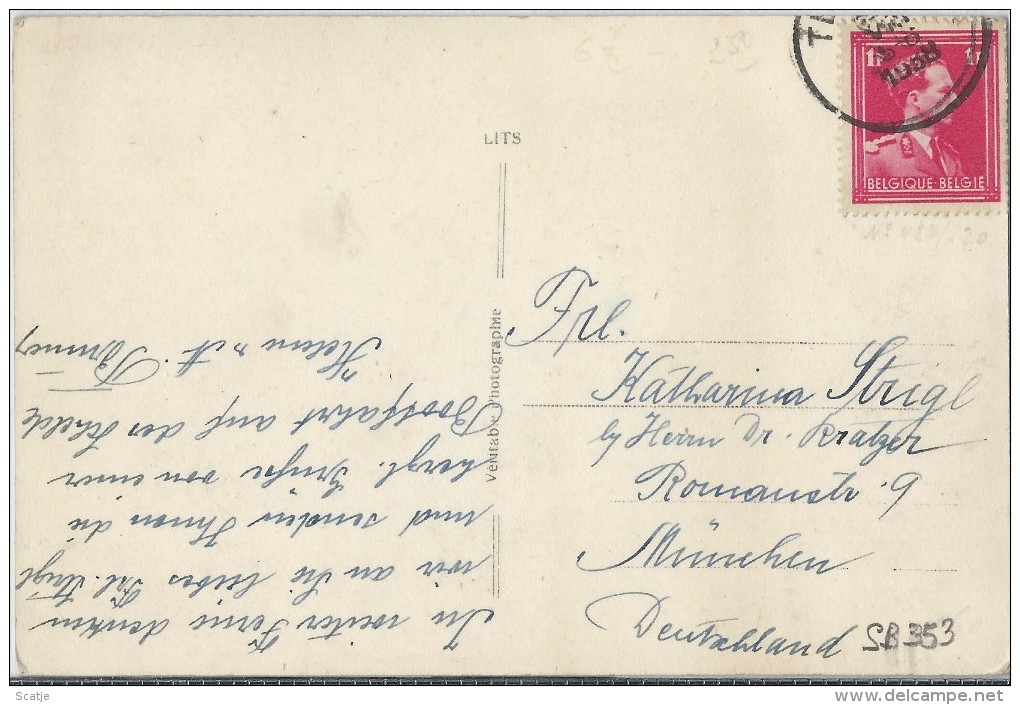 1F 1F
1938
BELGIQUE-BELGIË
LITS
Véritable Photographie
Frl.
Katharina Strigl
by Herrn Dr. Kratzer
Romanstr. 9
München
Deutschland
In weiter Ferne denken
wir an Sie liebes Frl. Strigl
und senden Ihnen die
herzl. Grüße von einer
Bootsfahrt auf der Schelde
Helene u. A.
SB 353
Scatje
www.delcampe.net